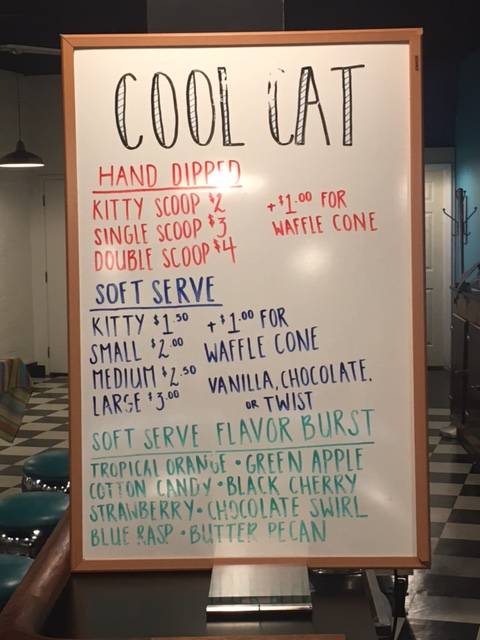 COOL CAT
HAND DIPPED
KITTY SCOOP $2
SINGLE SCOOP $3
DOUBLE SCOOP $4
+$1.00 FOR
WAFFLE CONE
SOFT SERVE
KITTY $1.50
SMALL $2.00
MEDIUM $2.50
LARGE $3.00
+$1.00 FOR
WAFFLE CONE
VANILLA, CHOCOLATE.
OR TWIST
SOFT SERVE FLAVOR BURST
TROPICAL ORANGE • GREEN APPLE
COTTON CANDY • BLACK CHERRY
STRAWBERRY • CHOCOLATE SWIRL
BLUE RASP • BUTTER PECAN